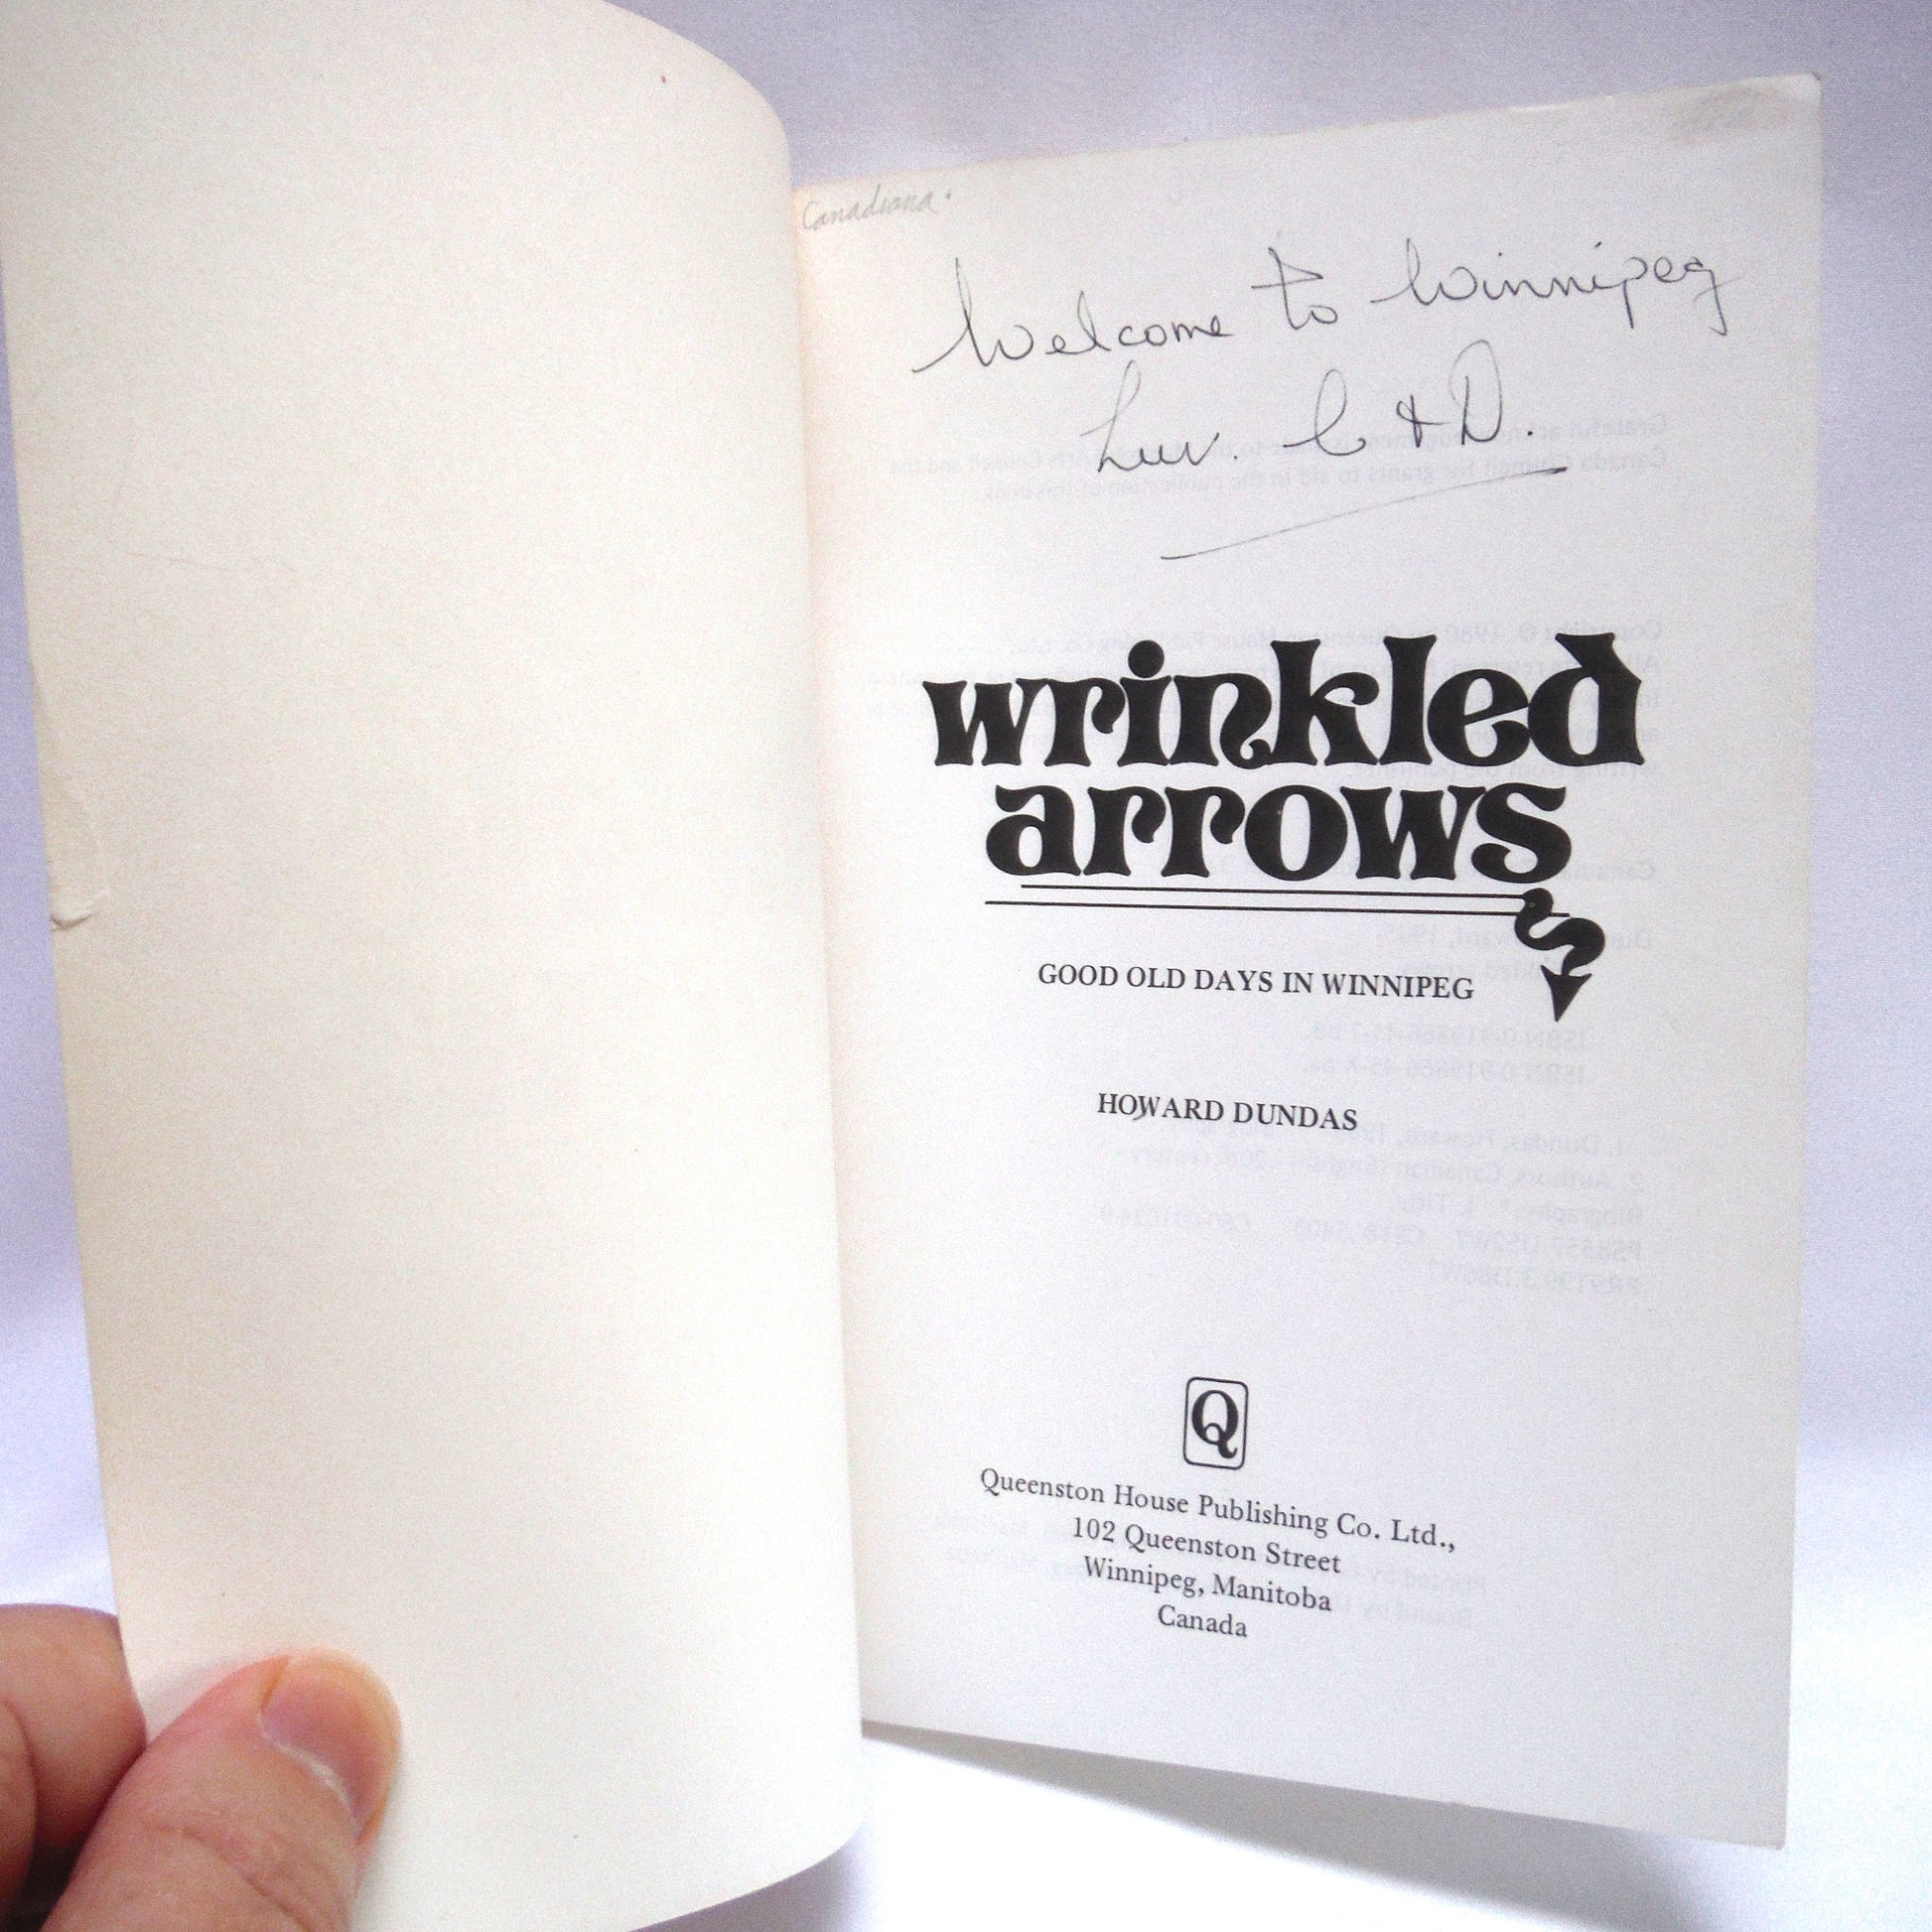 Canadiana.
Welcome to Winnipeg
Luv. C & D.
wrinkled
arrows
GOOD OLD DAYS IN WINNIPEG
HOWARD DUNDAS
Q
Queenston House Publishing Co. Ltd.,
102 Queenston Street
Winnipeg, Manitoba
Canada